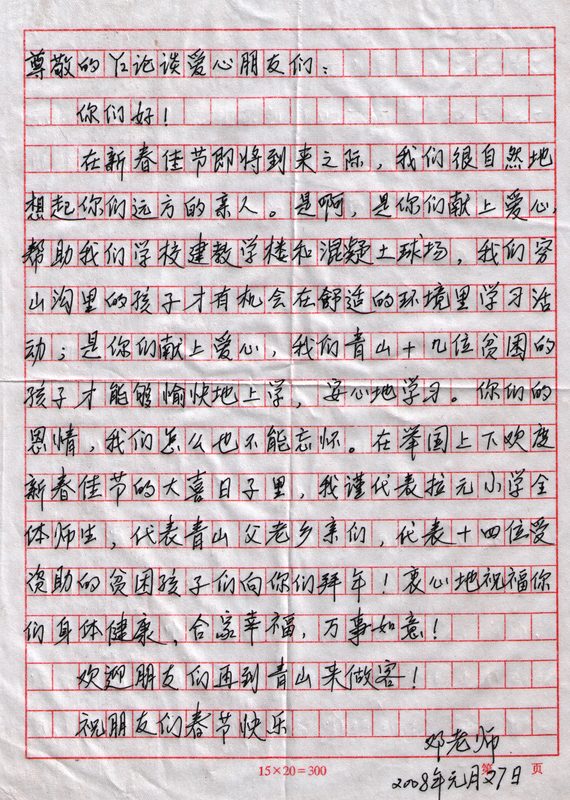 尊敬的Y2论谈爱心朋友们：
你们好！
在新春佳节即将到来之际，我们很自然地
想起你们远方的亲人。是啊，是你们献上爱心，
帮助我们学校建教学楼和混凝土球场，我们穷
山沟里的孩子才有机会在舒适的环境里学习活
动；是你们献上爱心，我们青山十几位贫困的
孩子才能够愉快地上学，安心地学习。你们的
恩情，我们怎么也不能忘怀。在举国上下欢度
新春佳节的大喜日子里，我谨代表拉元小学全
体师生，代表青山父老乡亲们，代表十四位受
资助的贫困孩子们向你们拜年！衷心地祝福你
们身体健康、合家幸福，万事如意！
欢迎朋友们再到青山来做客！
祝朋友们春节快乐
邓老师
15×20=300 第 页
2008年元月27日